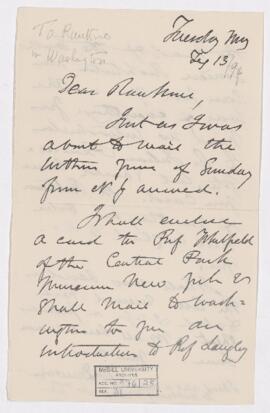 To Rankine
in Washington
Tuesday Mng
Sep 13/94
Dear Rankine,
Just as I was
about to mail the
within yours of Sunday
from N J arrived.
I shall enclose
a card to Prof Whitfield
of the Central Park
Museum New York &
shall mail to Wash-
ington to you an
introduction to Prof Langley
McGILL UNIVERSITY
ARCHIVES
ACC. NO.
REF.